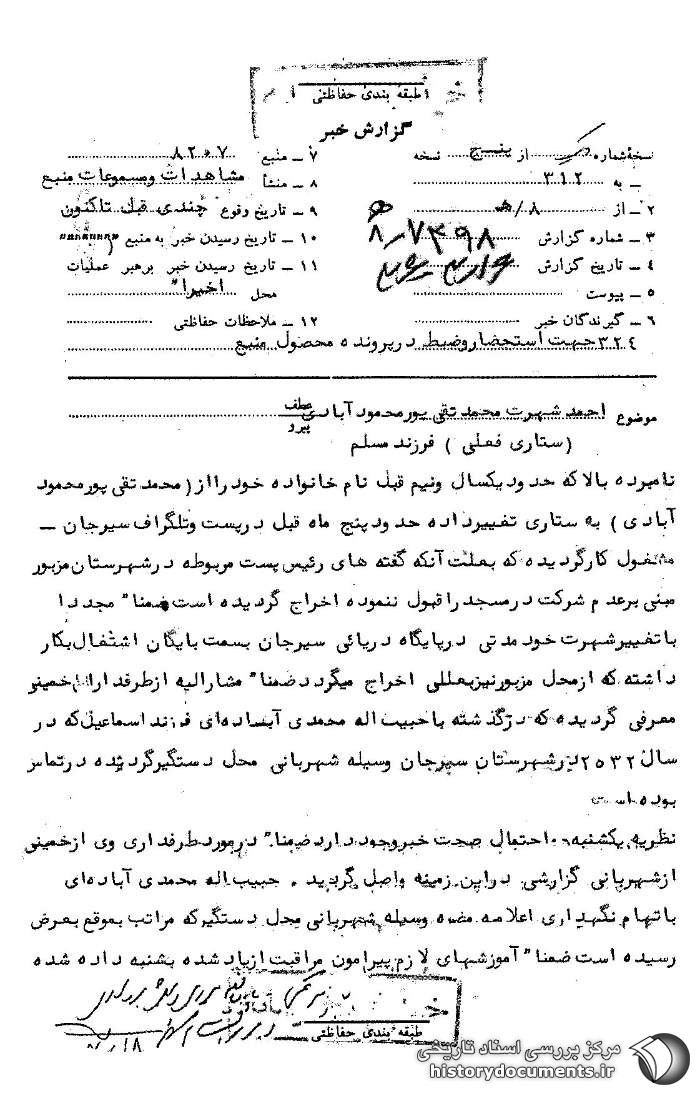 طبقه بندی حفاظتی
گزارش خبر
نسخهٔ شماره یک از پنج نسخه
۱ ـ به ۳۱۲
۲ ـ از ۸/ ه
۳ ـ شماره گزارش ۷۳۹۸
۴ ـ تاریخ گزارش
۵ ـ پیوست
۶ ـ گیرندگان خبر
۷ ـ منبع ۸۲۰۷
۸ ـ منشأ مشاهدات ومسموعات منبع
۹ ـ تاریخ وقوع چندی قبل تاکنون
۱۰ ـ تاریخ رسیدن خبر به منبع
۱۱ ـ تاریخ رسیدن خبر برهبر عملیات
محل اخیرا"
۱۲ ـ ملاحظات حفاظتی
۳۲٤ جهت استحضار وضبط درپرونده محصول منبع
موضوع احمد شهرت محمد تقی پورمحمود آبادی عطف
پیرو
(ستاری فعلی ) فرزند مسلم
نامبرده بالا که حدود یکسال ونیم قبل نام خانواده خود رااز (محمد تقی پورمحمود
آبادی ) به ستاری تغییرداده حدود پنج ماه قبل درپست وتلگراف سیرجان ـ
مشغول کارگردیده که بعلت آنکه گفته های رئیس پست مربوطه درشهرستان مزبور
مبنی برعدم شرکت درمسجد راقبول ننموده اخراج گردیده است ضمنا" مجددا
باتغییرشهرت خود مدتی درپایگاه دریائی سیرجان بسمت بایگان اشتغال بکار
داشته که ازمحل مزبورنیزبعللی اخراج میگردد ضمنا" مشارالیه ازطرفداران خمینی
معرفی گردیده که درگذشته باحبیب اله محمدی آباده‌ای فرزند اسماعیل که در
سال ۲۵۳۲ درشهرستان سیرجان وسیله شهربانی محل دستگیرگردیده درتماس
بوده است
نظریه یکشنبه. احتمال صحت خبروجود دارد ضمنا" درمورد طرفداری وی ازخمینی
ازشهربانی گزارشی دراین زمینه واصل گردید . حبیب اله محمدی آباده‌ای
باتهام نگهداری اعلامه مضره وسیله شهربانی محل دستگیرکه مراتب بموقع بعرض
رسیده است ضمنا" آموزشهای لازم پیرامون مراقبت ازیاد شده بشنبه داده شده
طبقه بندی حفاظتی
مرکز بررسی اسناد تاریخی
historydocuments.ir